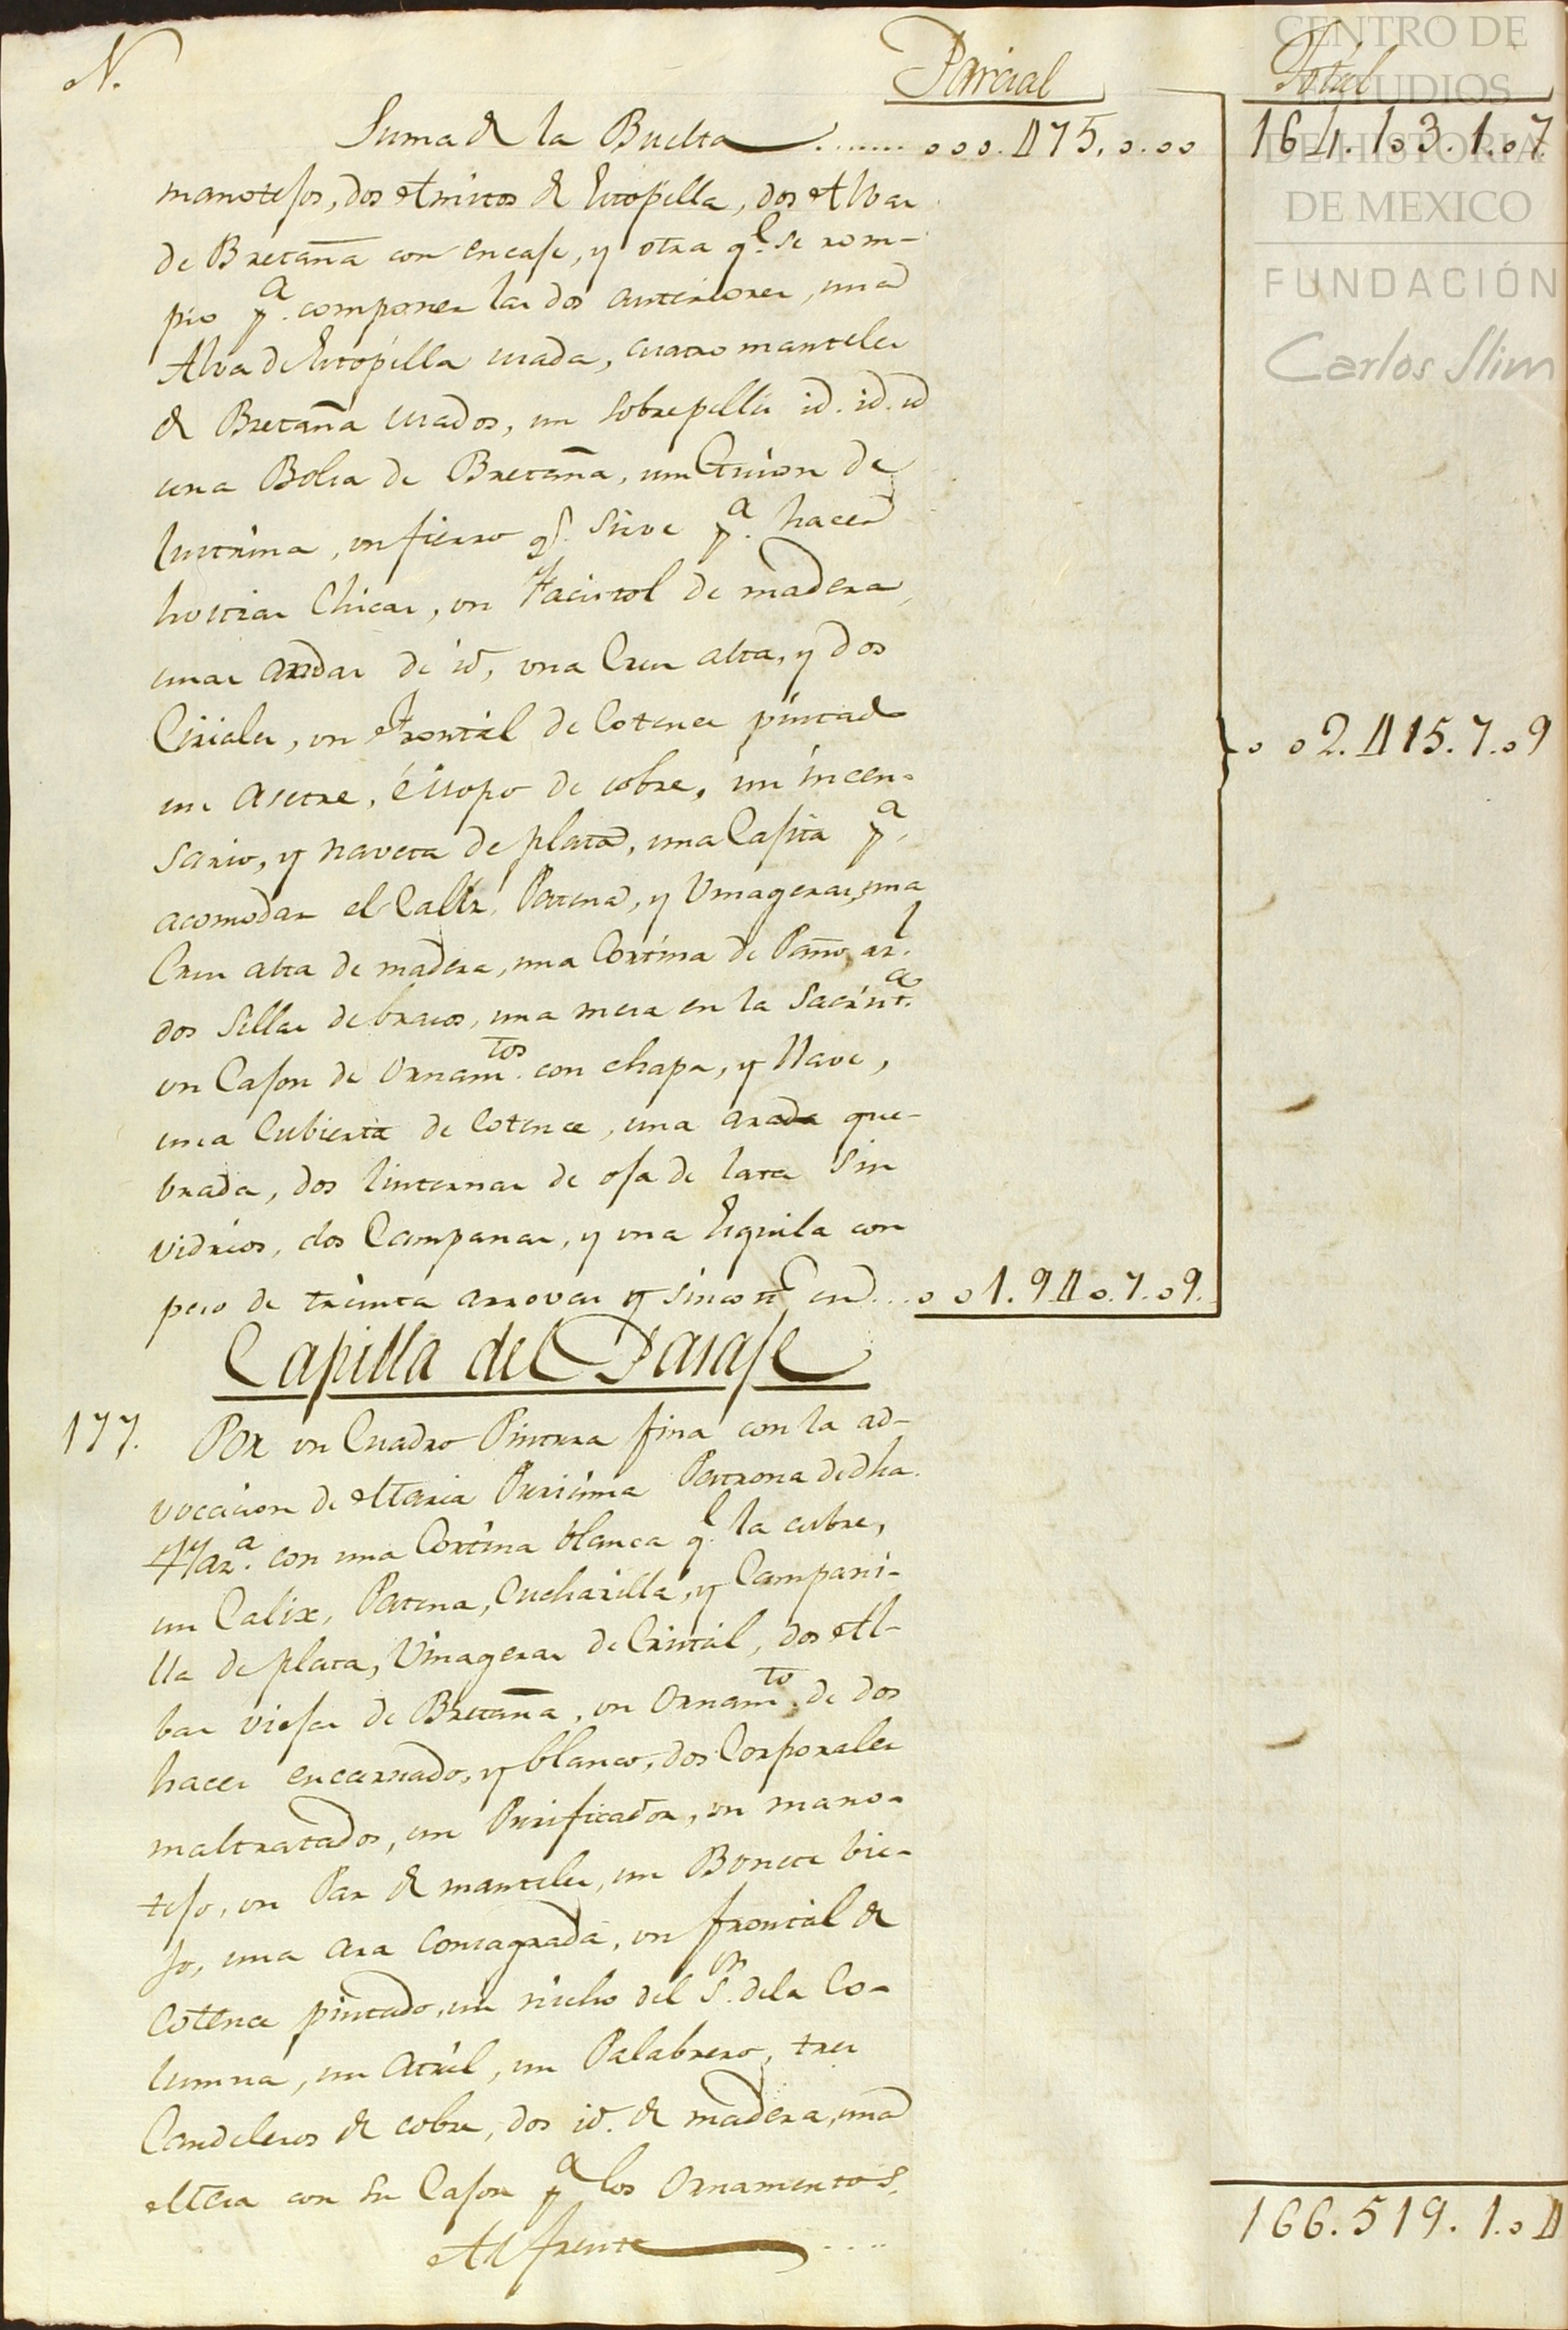 N. Parcial Total
Suma de la Buelta ....... 000.475.0.00 164.103.1.07.
manotejos, dos Amitos de Estopilla, dos Alvas
de Bretaña con encaje, y otra q.e se rom-
pio p.a componer las dos anteriores, una
Alva de Estopilla usada, cuatro manteles
de Bretaña usados, un sobrepelliz id. id. id
una Bolsa de Bretaña, un Guion de
lustrina, un fierro q.e sirve p.a hacer
hostias chicas, un Facistol de madera,
unas andas de id, una Cruz alta, y dos
Ciriales, un Frontal de Cotence pintado
un asetre, é isopo de cobre, un incen-
sario, y naveta de plata, una Cajita p.a
acomodar el Caliz, Patena, y Vinageras, una
Cruz alta de madera, una Cortina de Paño az.l
dos Sillas de brazos, una mesa en la Sacrist.a
un Cajon de Ornam.tos con chapa, y llave,
una Cubierta de Cotence, una arada que-
brada, dos linternas de oja de lata sin
vidrios, dos Campanas, y una Esquila con
peso de treinta arrovas y sinco en ... 001.940.7.09. 002.415.7.09
Capilla del Pasaje
177. Por un Cuadro Pintura fina con la ad-
vocacion de Maria Purisima Patrona de dha.
Haz.a con una Cortina blanca q.e la cubre,
un Calix, Patena, Cucharilla, y Campani-
lla de plata, Vinageras de Cristal, dos Al-
bas viejas de Bretaña, un Ornam.to de dos
haces encarnado, y blanco, dos Corporales
maltratados, un Purificador, un mano-
tejo, un Par de manteles, un Bonete vie-
jo, una Ara consagrada, un frontal de
Cotence pintado, un nicho del S.or de la Co-
lumna, un Atril, un Palabrero, tres
Candeleros de cobre, dos id. de madera, una
Mesa con su Cajon p.a los Ornamentos.
Al frente .... 166.519.1.04
CENTRO DE
ESTUDIOS
DE HISTORIA
DE MEXICO
FUNDACIÓN
Carlos Slim